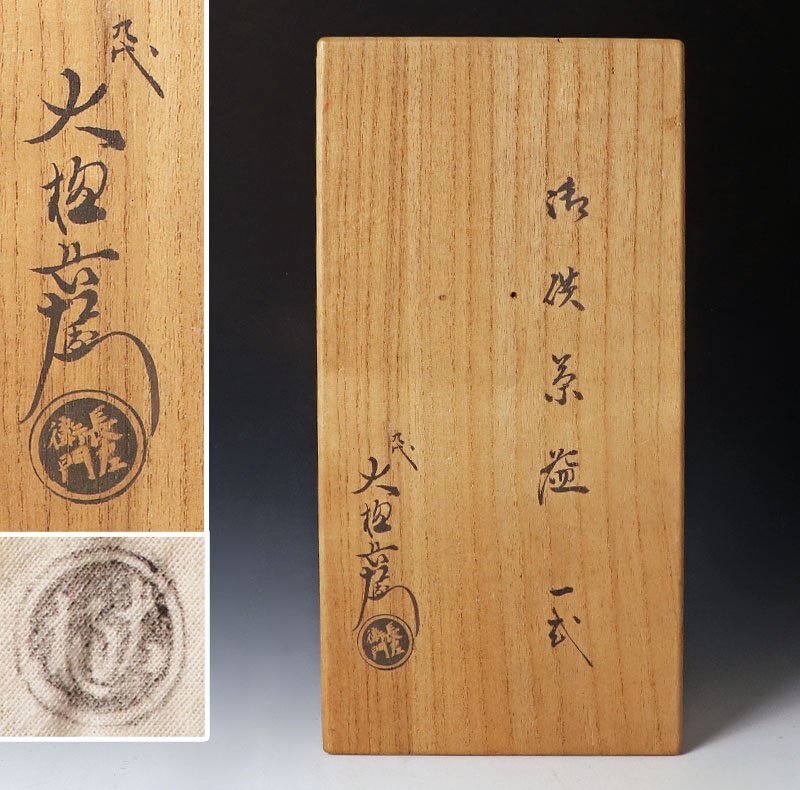 九代
大樋長左衛門
長左衛門
大樋
御供茶盌 一式
九代
大樋長左衛門
長左衛門